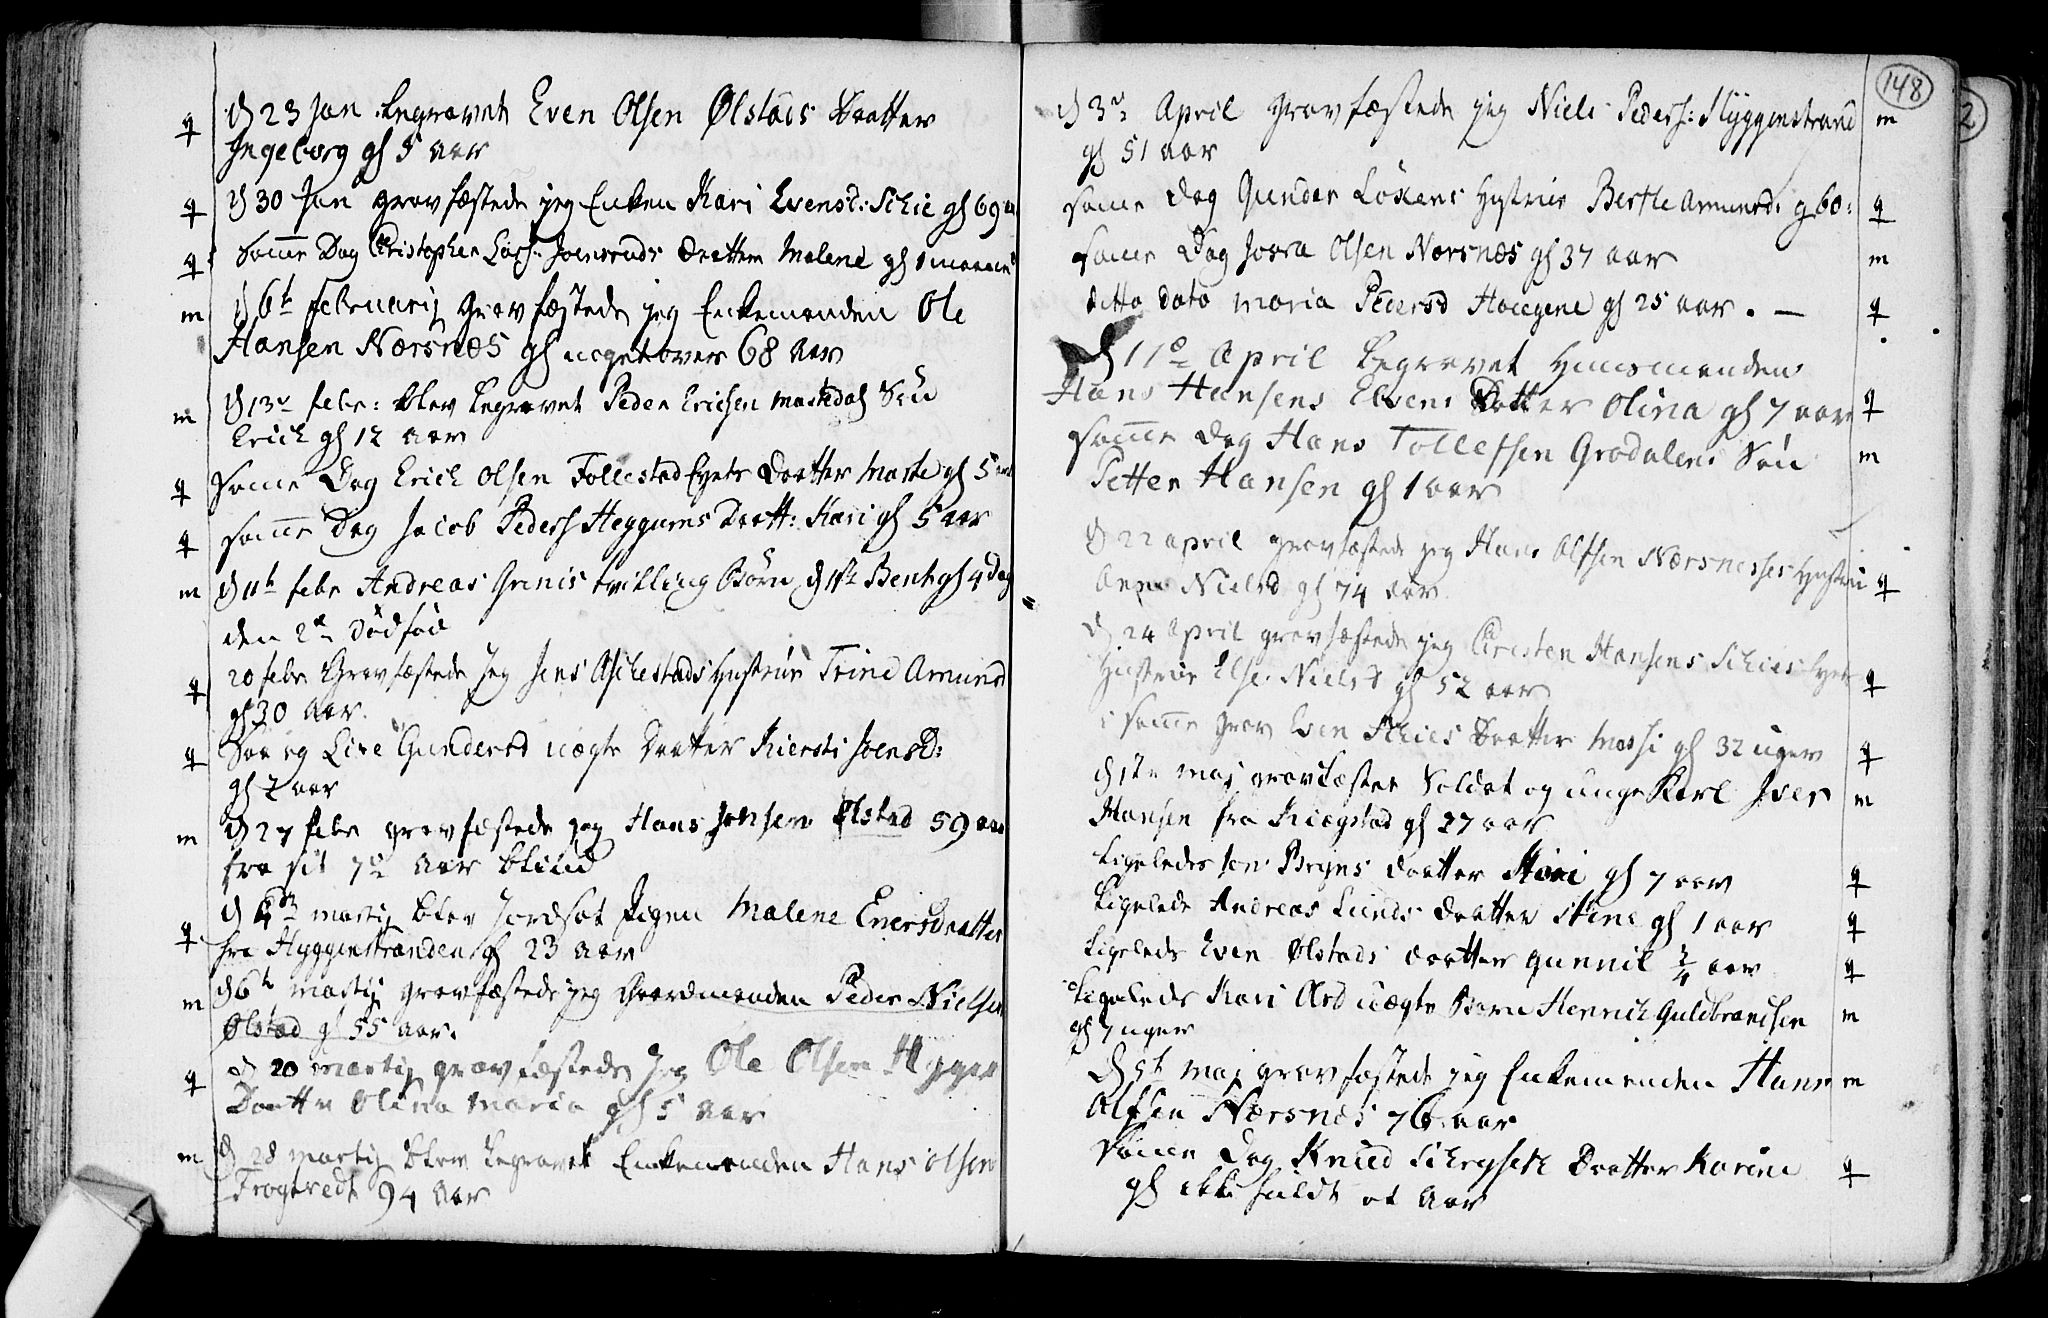 q d 23 Jan begravet Even Olsen Ølstads Daatter
Ingeborg gl 5 aar
q d 30 Jan gravfæstede jeg Enken Kari Evensd: Schie gl 69 a
q Samme Dag Christopher Lars: Daatter Malene gl 1 maaned
m d 6te Februarij gravfæstede jeg Enkemanden Ole
Hansen Nærsnæs gl noget over 68 aar
m d 13de febr: blev begravet Peder Erichsen Søn
Erich gl 12 aar
q Samme Dag Erich Olsen Follestad Eyets Daatter Marte gl 5 aar
q samme Dag Jacob Peders Heggums Daatt: Kari gl 5 aar
m d febr Andreas Grinis tvilling Børn d 1ste Bent gl 4 dag
den 2de Dødfød
q 20 febr Gravfæstede Jeg Jens Aschestads Hustrue Trine Amund
gl 30 aar.
q Saa og Lise Gundersd uægte Daatter Kiersti Joensd:
gl 2 aar
m d 27 febr gravfæstede jeg Hans Jensen Ølstad 59 aar
fra sit 7de Aar blind
q d martij blev Jordsat Pigen Malene Enersdaatter
fra Hyggenstranden gl 23 aar
m d 6te martij gravfæstede jeg Gaardmanden Peder Nielsen
Ølstad gl 55 aar.
q d 20 martij gravfæstede Jeg Ole Olsen Hygges
Daatter Olina Maria gl 5 aar
m d 28 martij blev begravet Enkemanden Hans Olsen
94 aar
148
2
d 3de April gravfæstede jeg Niels Peders: Hyggenstrand m
gl 51 aar
same dag Gunder Løkens Hustrue Berthe Amunds g 60: q
same Dag Joara Olsen Nærsnæs gl 37 aar m
ditto dato Maria Pedersd gl 25 aar. — q
d 11te April begravet Huusmanden
Hans Hansens Elvens Datter Olina gl 7 aar q
samme dag Hans Tollefsen Grødalens Søn m
Petter Hansen gl 1 aar
d 22 april gravfæstede jeg Hans Alfsen Nærsnesses Hustrue q
Anne Nielsd gl 74 aar
d 24 April gravfæstede jeg Christen Hansens Schies Eyets
Hustrue Else Nielsd gl 52 aar q
i samme grav Even Schies Daatter gl 32 uger q
d 1ste maj gravfæstet Soldat og unge Karl Iver m
Hansen fra gl 27 aar
Ligeledes Daatter gl 7 aar q
Ligelede Andreas Lunds Daatter Stine gl 1 aar q
Ligelede Even Ølstads Daatter Gunnil 3/4 aar q
Ligeleds Kari uægte Barn Henrich Guldbrandsen m
gl 7 uger
d maj gravfæstede jeg Enkemanden Hans m
Alfsen Nærsnes 76 aar
Samme Dag Knud Daatter Karine q
gl ikke fuldt et Aar